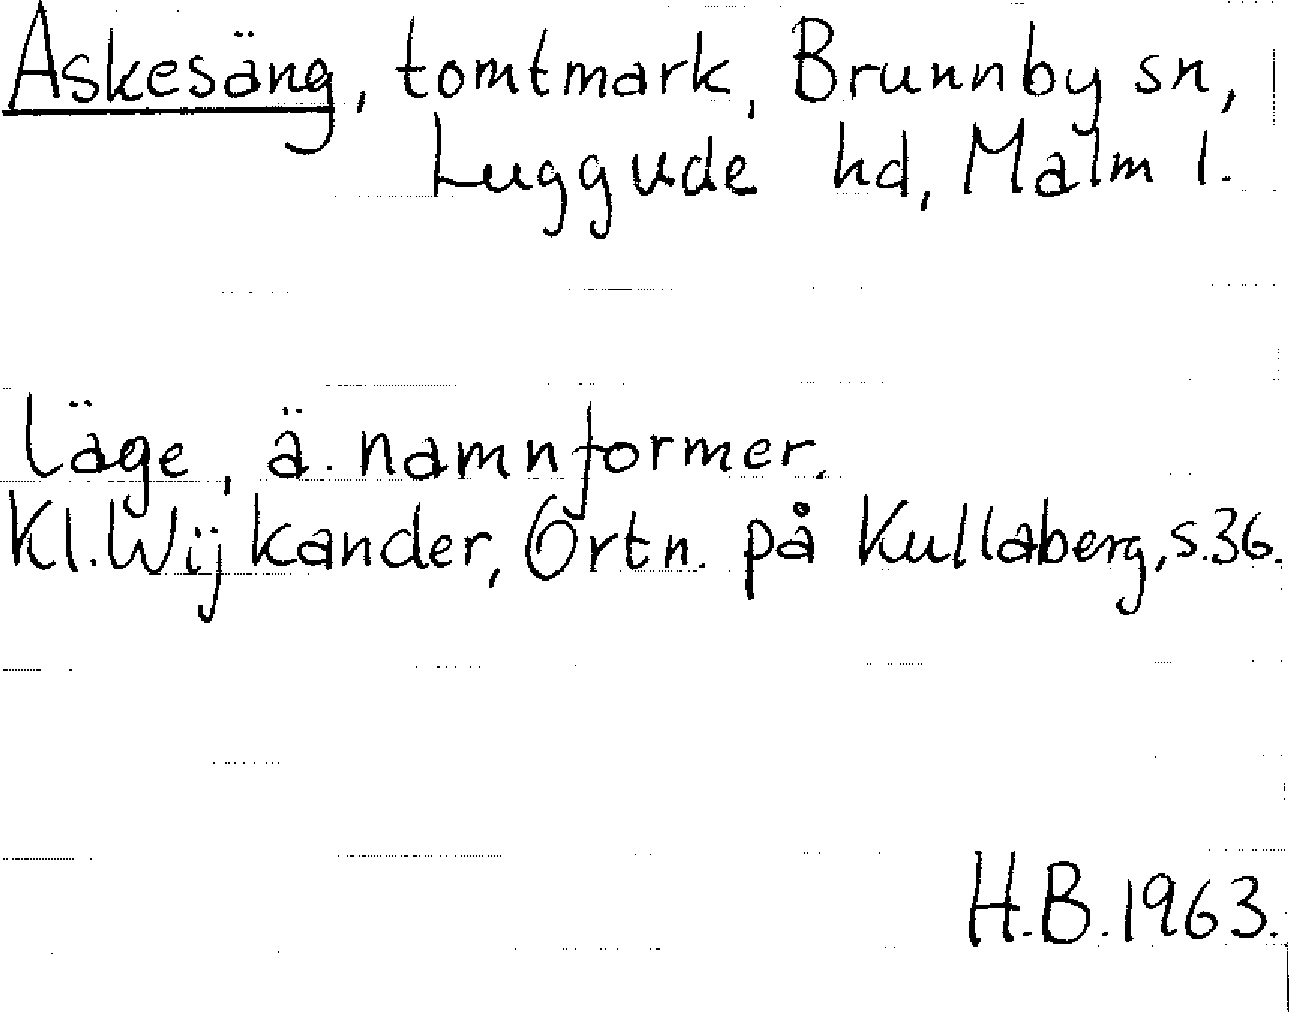 Askesäng, tomtmark, Brunnby sn,
Luggude hd, Malm l.
Läge, ä. namnformer.
Kl. Wijkander, Ortn. på Kullaberg, s. 36.
H.B. 1963.